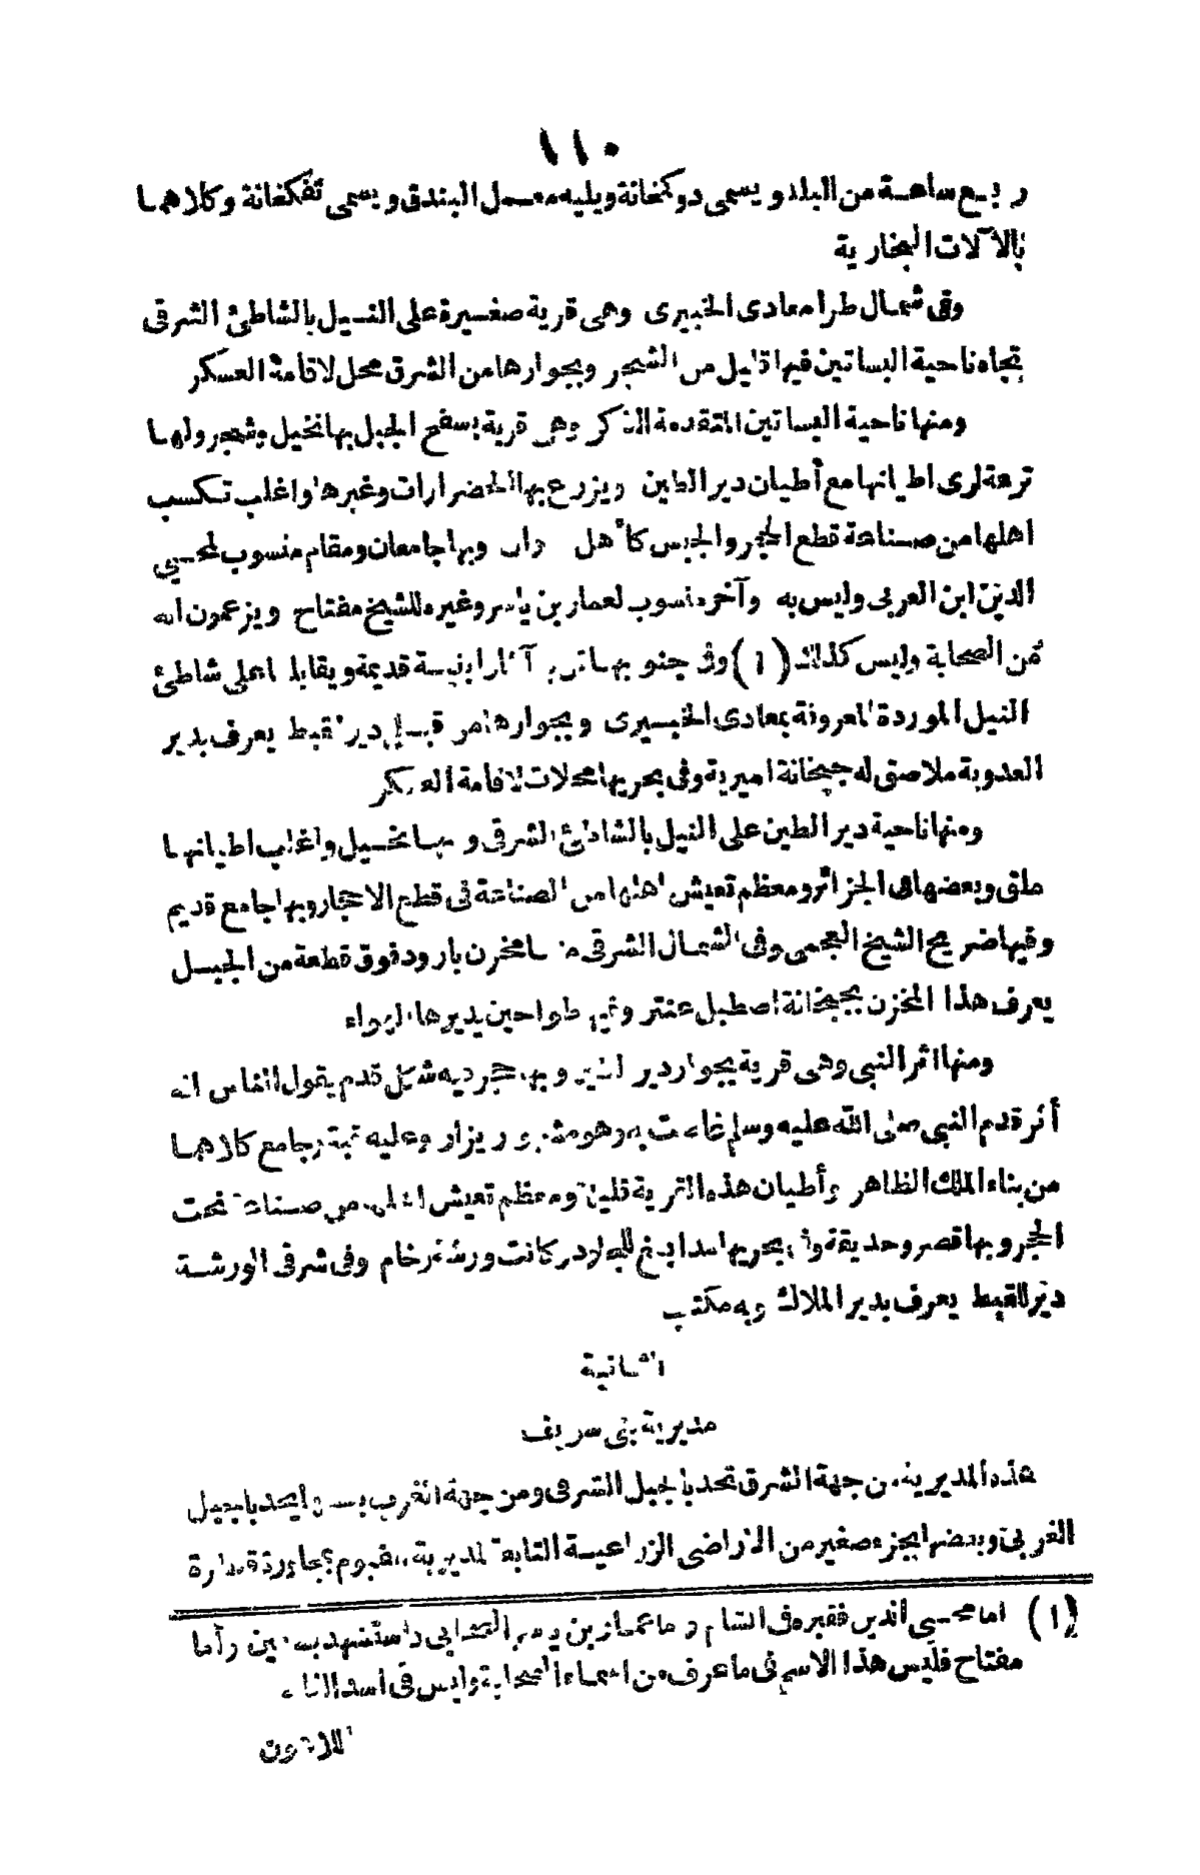 ١١٠
ربع ساعة من البلد ويسمى دوكمخانة ويليه معمل البندق ويسمى تفكخانة وكلاهما
بالآلات البخارية
وفى شمال طرا معادى الخبيرى وهى قرية صغيرة على النيل بالشاطئ الشرقى
تجاه ناحية البساتين فيها قليل من الشجر وبجوارها من الشرق محل لاقامة العسكر
ومنها ناحية البساتين المتقدمة الذكر وهى قرية بسفح الجبل بها نخيل وشجر ولها
ترعة لرى اطيانها مع أطيان دير الطين ويزرع بها الخضرارات وغيرها واغلب تكسب
اهلها من صناعة قطع الحجر والجبس كأهل وبها جامعان ومقام منسوب لمحيي
الدين ابن العربى وليس به وآخر منسوب لعمار بن ياسر وغيره للشيخ مفتاح ويزعمون انه
من الصحابة وليس كذلك (١) وفى جنوبها آثار ابنية قديمة ويقابلها على شاطئ
النيل الموردة المعروفة بمعادى الخبيرى وبجوارها من قبلى دير لقبط يعرف بدير
العدوية ملاصق له جبخانة اميرية وفى بحريها محلات لاقامة العسكر
ومنها ناحية دير الطين على النيل بالشاطئ الشرقى وبها نخيل واغلب اطيانها
ملق وبعضها فى الجزائر ومعظم تعيش اهلها من الصناعة فى قطع الاحجار وبها جامع قديم
وفيها ضريح الشيخ العجمى وفى الشمال الشرقى منها مخزن بارود فوق قطعة من الجبل
يعرف هذا المخزن بجبخانة اصطبل عنتر وفيها طواحين يديرها الهواء
ومنها اثر النبى وهى قرية بجوار دير الطين وبها حجر ديه شكل قدم يقول الناس انه
أثر قدم النبى صلى الله عليه وسلم غاصت به وهو مشهور يزار وعليه قبة وجامع كلاهما
من بناء الملك الظاهر وأطيان هذه القرية قليلة ومعظم تعيش اهلها من صناعة نحت
الحجر وبها قصر وحديقة وفى بحريها مدابغ للجلود كانت ورشة رخام وفى شرقى الورشة
دير للقبط يعرف بدير الملاك وبه مكتب
الثانية
مديرية بنى سويف
هذه المديرية من جهة الشرق تحد بالجبل الشرقى ومن جهة الغرب يحد بالجبل
الغربى وبعضها بجزء صغير من الاراضى الزراعية التابعة لمديرية الفيوم مجاورة قنطرة
(١) اما محيي الدين فقبره فى الشام واما عمار بن ياسر الصحابى فاستشهد بصفين وأما
مفتاح فليس هذا الاسم فى ما عرف من اسماء الصحابة وليس فى اسد الغابة
اللاهون